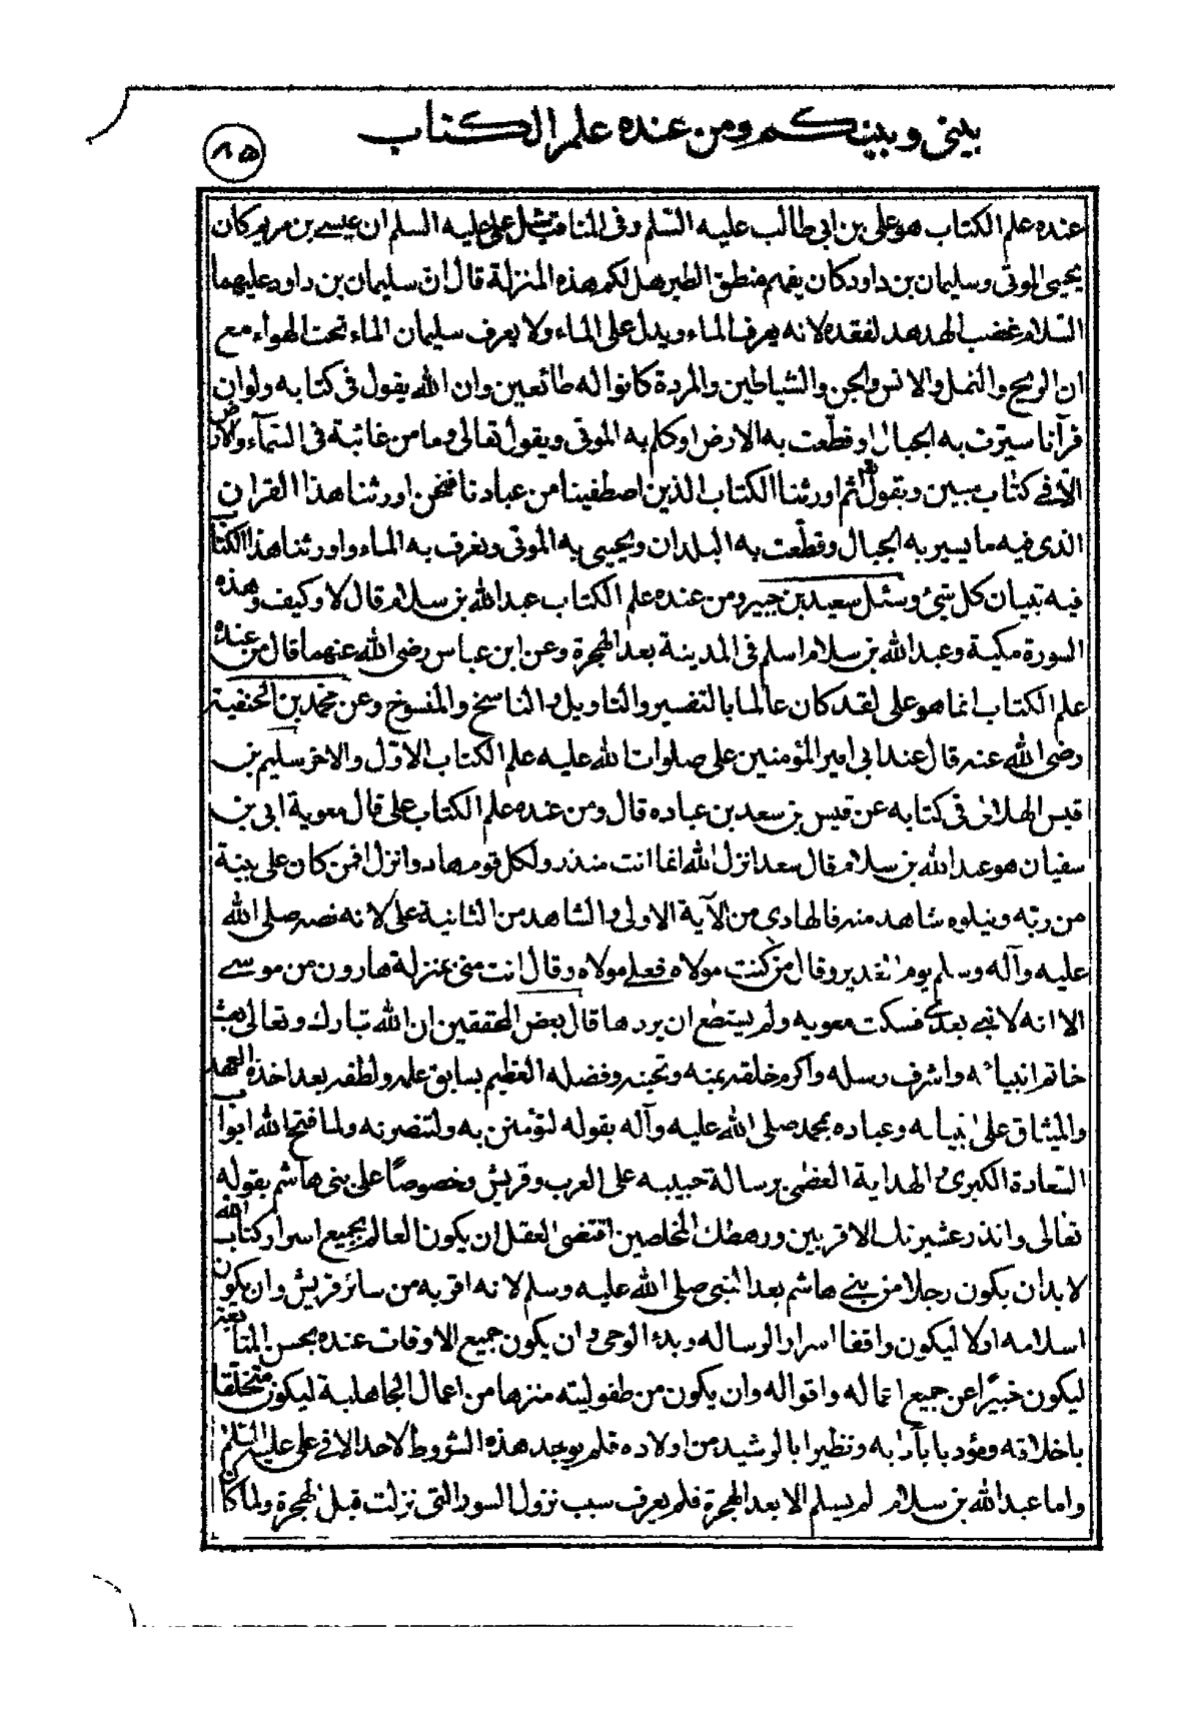 بيني وبينكم ومن عنده علم الكتاب
١٠٥
عنده علم الكتاب هو علي بن ابي طالب عليه السّلم وفي المناقب سئل علي عليه السلم ان عيسى بن مريم كان
يحيي الموتى وسليمان بن داود كان يفهم منطق الطير هل لكم هذه المنزلة قال ان سليمان بن داود عليهما
السّلام غضب الهدهد لفقده لانه يعرف الماء ويدل على الماء ولا يعرف سليمان الماء تحت الهواء مع
ان الريح والنمل والانس والجن والشياطين والمردة كانوا له طائعين وان الله يقول في كتابه ولو ان
قرآنا سيّرت به الجبال او قطّعت به الارض او كلم به الموتى ويقول تعالى وما من غائبة في السّمآء والارض
الّا في كتاب مبين ويقول ثم اورثنا الكتاب الذين اصطفينا من عبادنا فنحن اورثنا هذا القران
الذي فيه ما يسير به الجبال وقطّعت به البلدان ويحيى به الموتى ونعرف به الماء واورثنا هذا الكتاب
فيه تبيان كل شئ وسئل سعيد بن جبير ومن عنده علم الكتاب عبد الله بن سلام قال لا وكيف وهذه
السورة مكية وعبد الله بن سلام اسلم في المدينة بعد الهجرة وعن ابن عباس رضى الله عنهما قال من عنده
علم الكتاب انما هو علي لقد كان عالما بالتفسير والتاويل والناسخ والمنسوخ وعن محمد بن الحنفية
رضى الله عنه قال عند ابي امير المؤمنين علي صلوات الله عليه علم الكتاب الاوّل والاخر سليم بن
قيس الهلالى في كتابه عن قيس بن سعد بن عباده قال ومن عنده علم الكتاب علي قال معوية ابي بن
سفيان هو عبد الله بن سلام قال سعد انزل الله انما انت منذر ولكل قوم هاد وانزل افمن كان على بينة
من ربّه ويتلوه شاهد منه فالهادى من الآية الاولى والشاهد من الثانية علي لانه نصبه صلى الله
عليه وآله وسلم يوم الغدير وقال من كنت مولاه فعلي مولاه وقال انت مني بمنزلة هارون من موسى
الا انه لا نبي بعدي فسكت معويه ولم يستطع ان يردها قال بعض المحققين ان الله تبارك وتعالى بعث
خاتم انبيائه واشرف رسله واكرم خلقه بمنه وتحننه وفضله العظيم بسابق علمه ولطفه بعد اخذه العهد
والميثاق على انبيائه وعباده بمحمد صلى الله عليه وآله بقوله لتؤمنن به ولتنصرنه ولما فتح الله ابواب
السّعادة الكبرى والهداية العظمى برسالة حبيبه على العرب وقريش وخصوصًا على بني هاشم بقوله
تعالى وانذر عشيرتك الاقربين ورهطك المخلصين اقتضى العقل ان يكون العالم بجميع اسرار كتاب الله
لا بد ان يكون رجلا من بني هاشم بعد النبي صلى الله عليه وسلم لانه اقرب به من سائر قريش وان يكون
اسلامه اولا ليكون واقفا اسرار الرساله وبدء الوحي وان يكون جميع الاوقات عنده بحسن المتابعة
ليكون خبيرًا عن جميع اعماله واقواله وان يكون من طفوليته منزها من اعمال الجاهلية ليكون متخلقا
باخلاقه ومؤدبا بآدابه ونظيرا بالرشيد من اولاده فلم يوجد هذه الشروط لاحد الا في علي عليه السّلم
واما عبد الله بن سلام لم يسلم الا بعد الهجرة فلم يعرف سبب نزول السور التى نزلت قبل الهجرة ولما كان